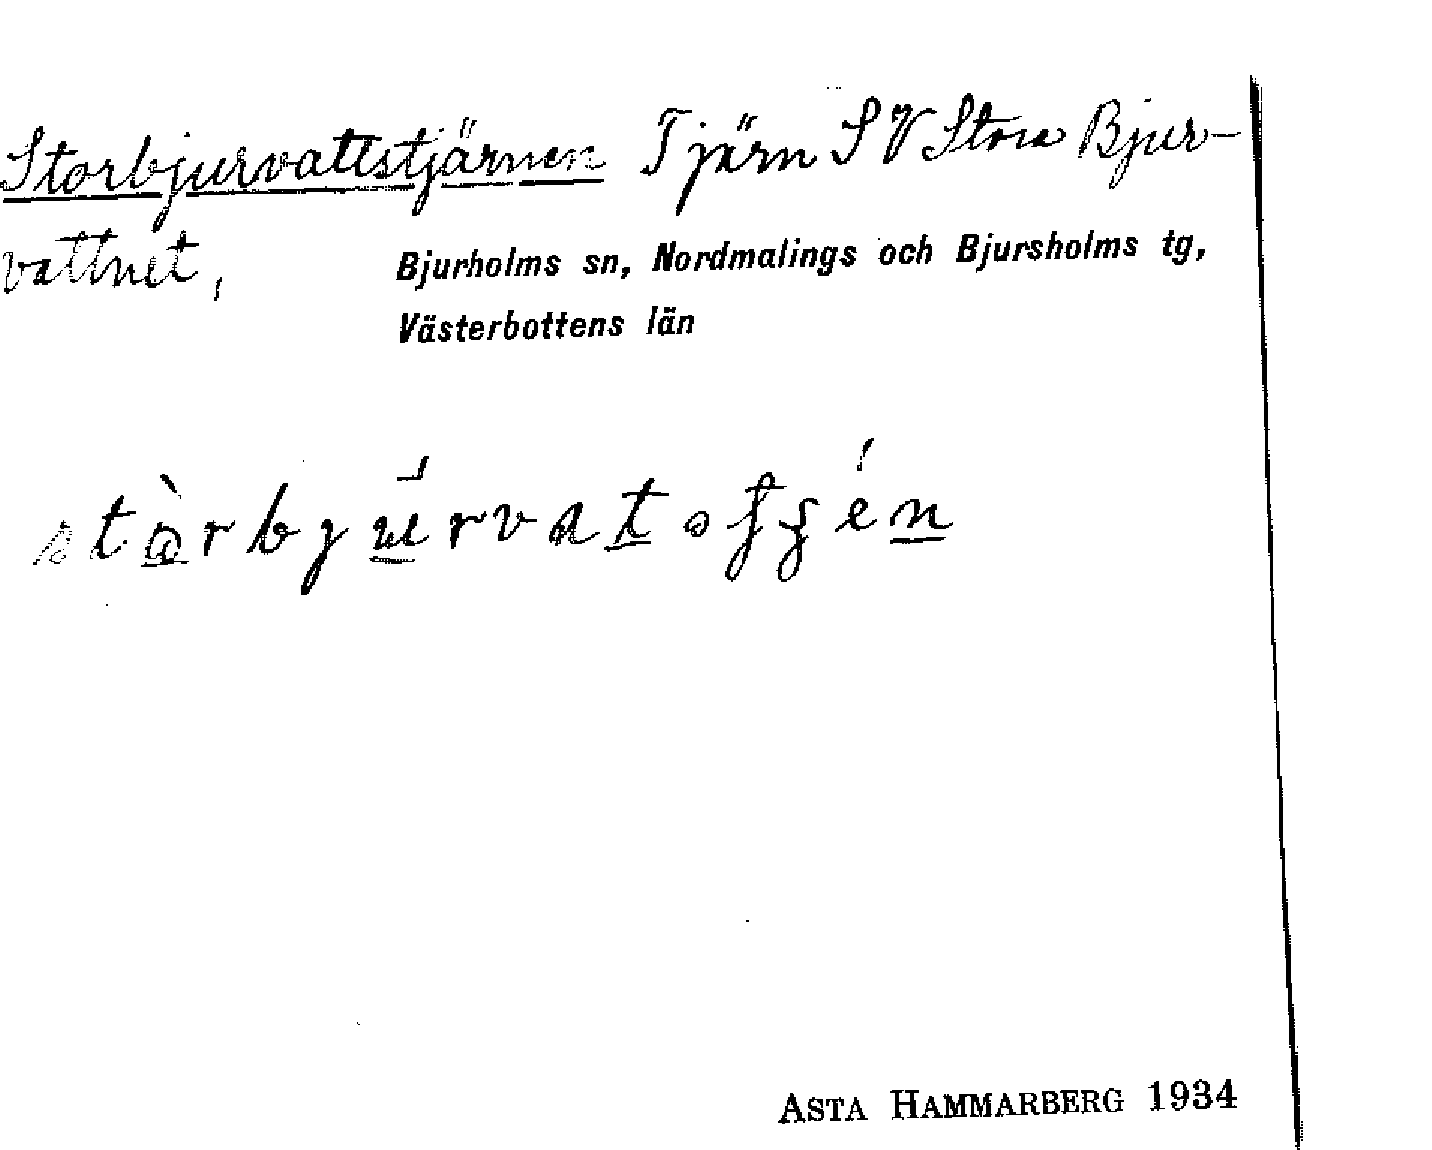 Storbjurvattstjärnen Tjärn SV Stora Bjur-
vattnet,
Bjurholms sn, Nordmalings och Bjursholms tg,
Västerbottens län
ASTA HAMMARBERG 1934